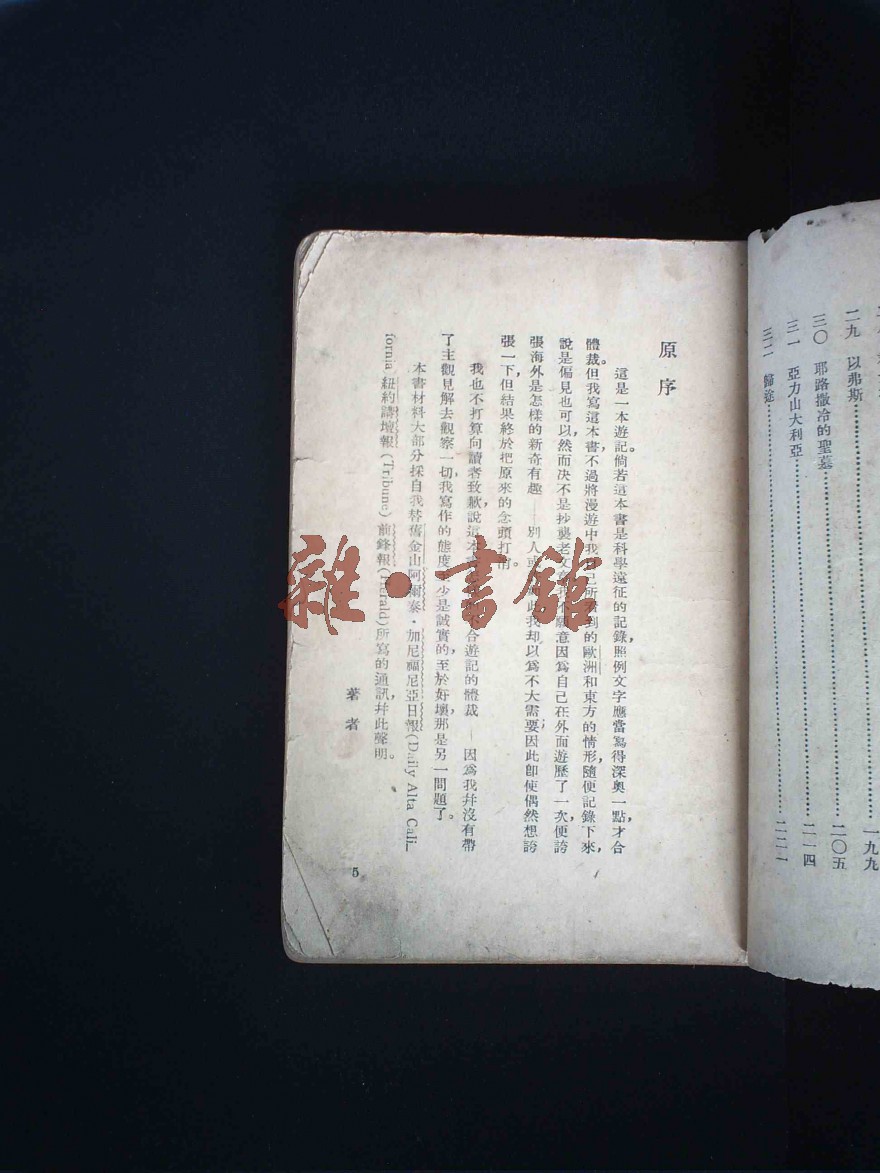 二九 以弗斯……一九九
三〇 耶路撒冷的聖墓……二〇五
三一 亞力山大利亞……二一四
三二 歸途……二二一
原序
這是一本遊記。倘若這本書是科學遠征的記錄，照例文字應當寫得深奧一點，才合
體裁。但我寫這本書，不過將漫遊中我自己所看到的歐洲和東方的情形，隨便記錄下來，
說是偏見也可以，然而决不是抄襲老文我不願意因爲自己在外面遊歷了一次，便誇
張海外是怎樣的新奇有趣——別人或此，我却以爲不大需要；因此卽使偶然想誇
張一下，但結果終於把原來的念頭打消。
我也不打算向讀者致歉，說這本不合遊記的體裁——因爲我幷沒有帶
了主觀見解去觀察一切，我寫作的態度少是誠實的，至於好壞，那是另一問題了。
本書材料大部分採自我替舊金山阿爾泰·加尼福尼亞日報（Daily Alta Cali-
fornia）紐約講壇報（Tribune）前鋒報（Herald）所寫的通訊，幷此聲明。
著者
5
雜·書館